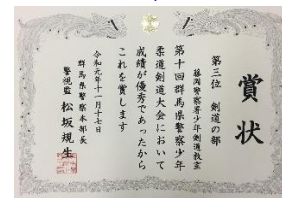 賞状
第三位 剣道の部
藤岡警察署少年剣道教室
第十回群馬県警察少年
柔道剣道大会において
成績が優秀であったから
これを賞します
令和元年十一月十七日
群馬県警察本部長
警視監 松坂規生